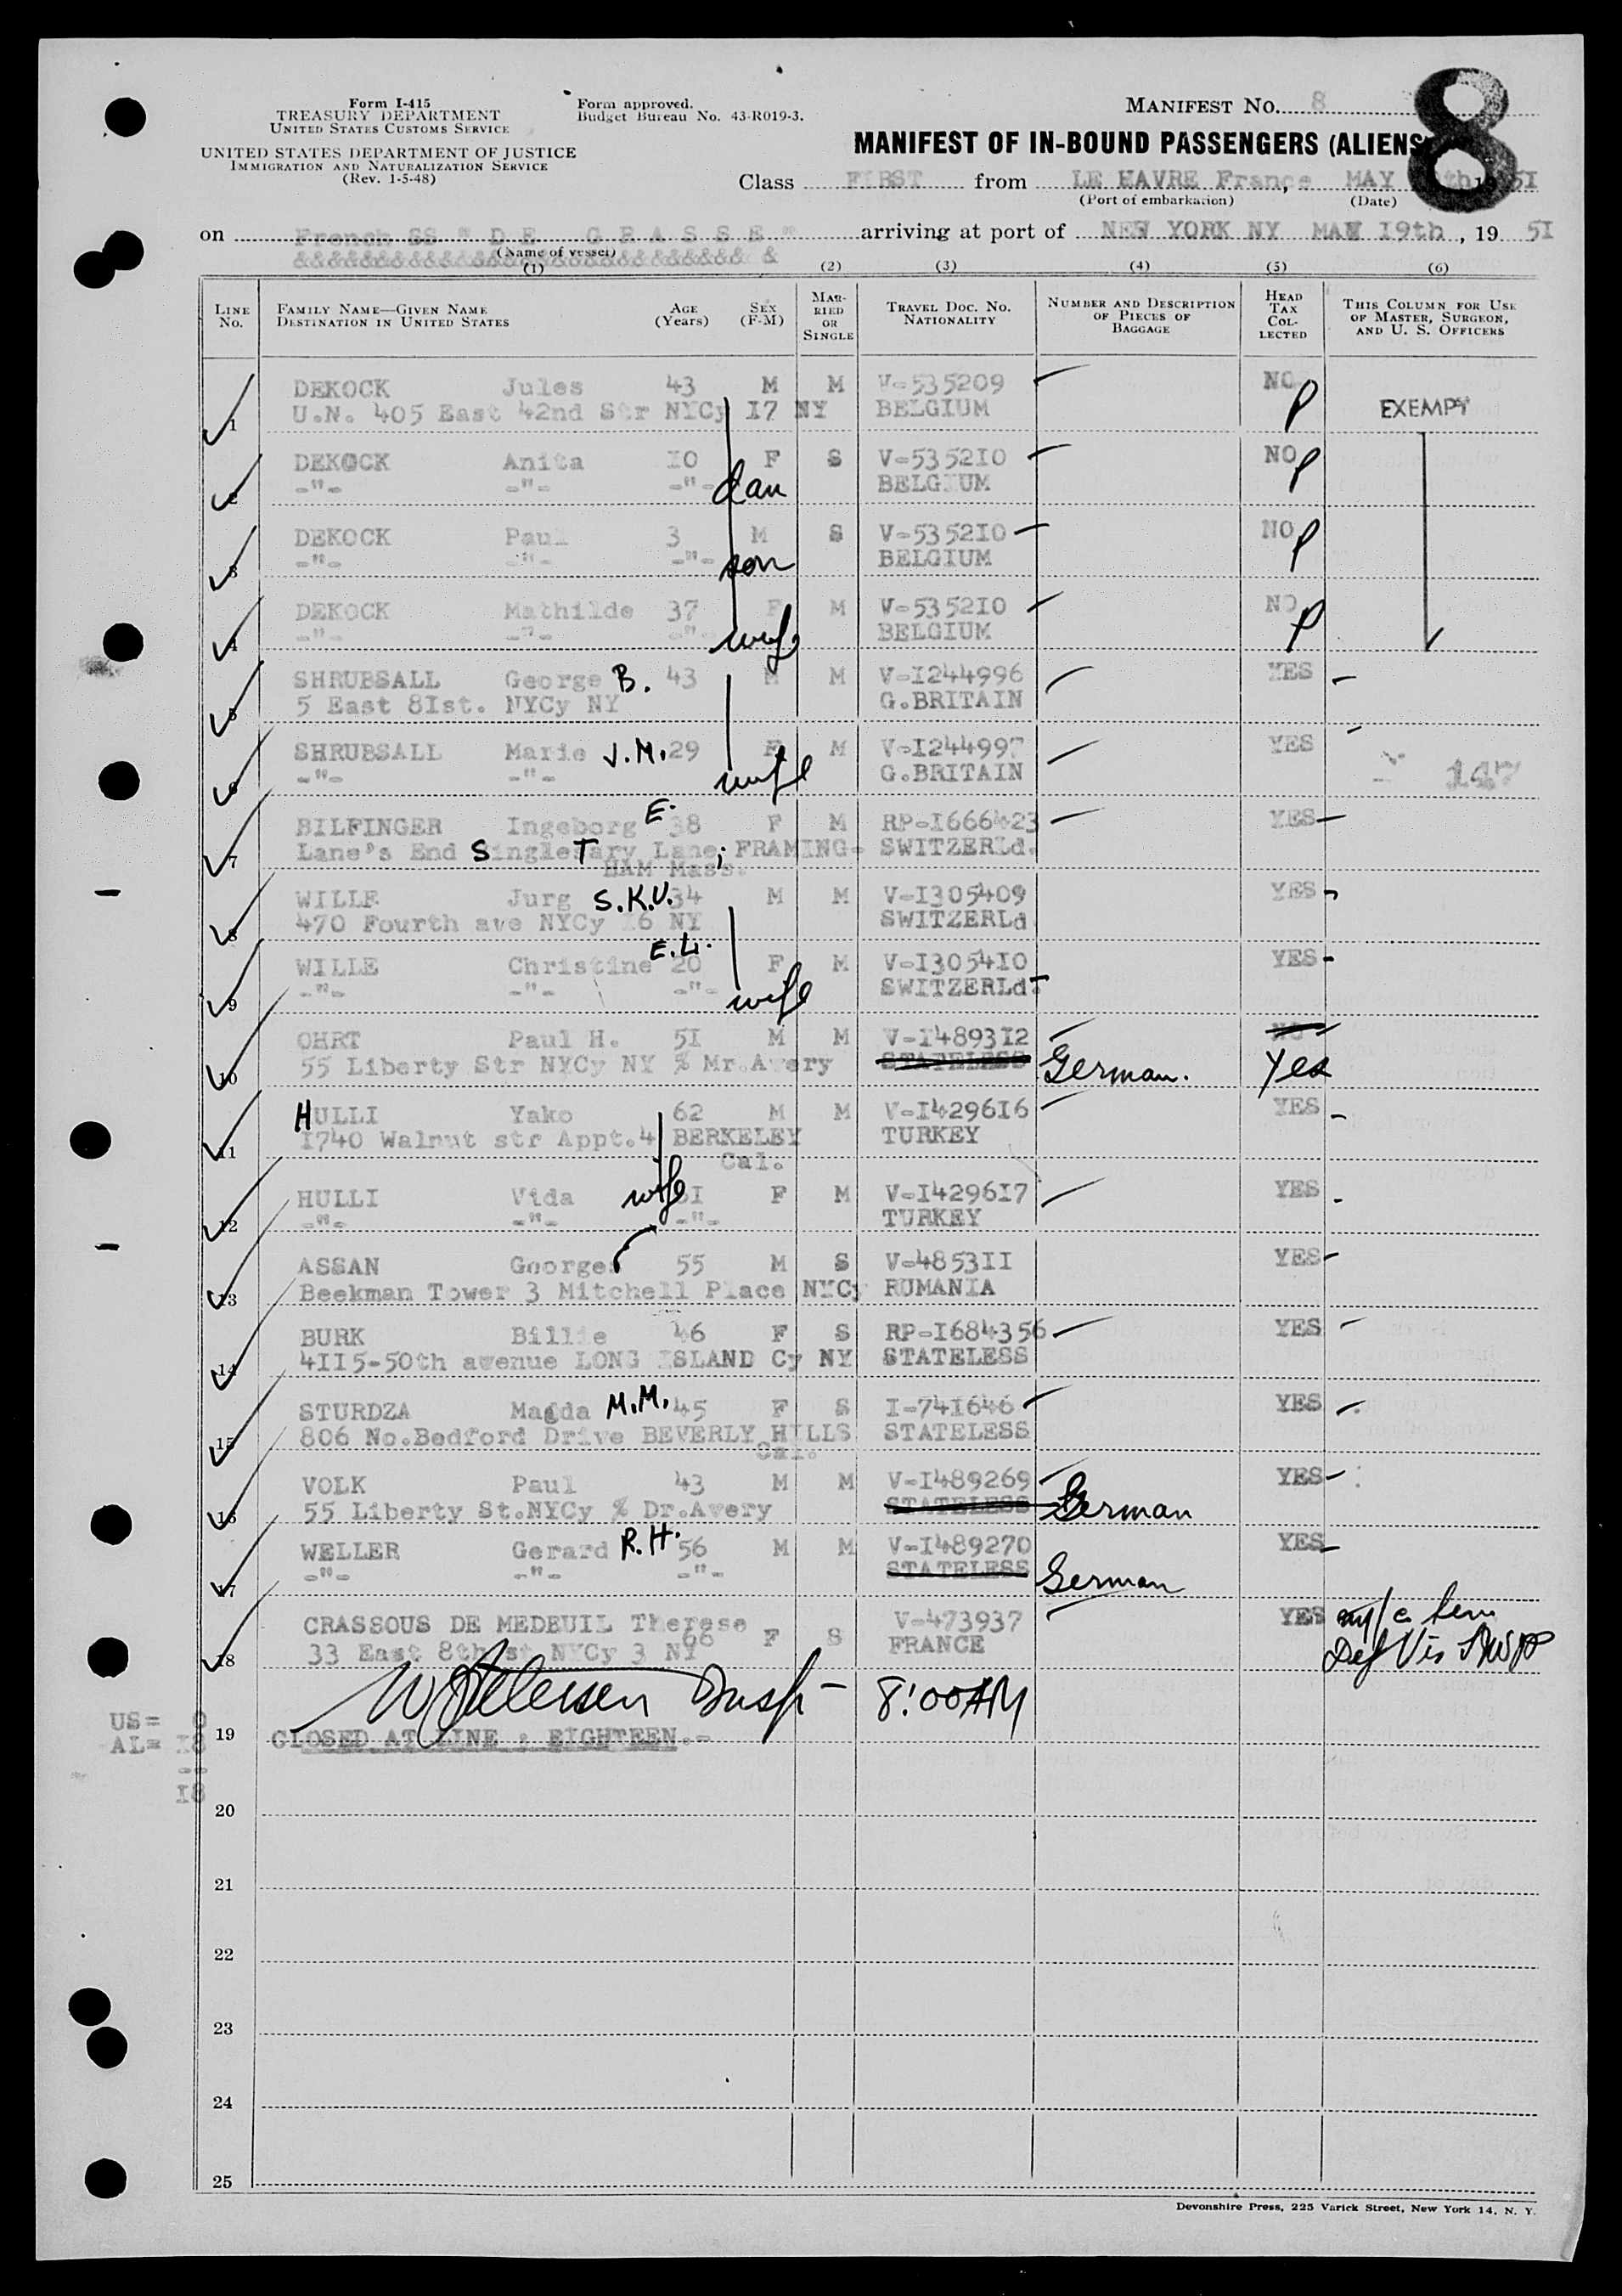 Form I-415
TREASURY DEPARTMENT
UNITED STATES CUSTOMS SERVICE
UNITED STATES DEPARTMENT OF JUSTICE
IMMIGRATION AND NATURALIZATION SERVICE
(Rev. 1-5-48)
Form approved.
Budget Bureau No. 43-R019-3.
MANIFEST NO. 8
8
MANIFEST OF IN-BOUND PASSENGERS (ALIENS)
Class FIRST from LE HAVRE France, MAY th 1951
(Port of embarkation) (Date)
on French SS " D E G R A S S E " arriving at port of NEW YORK NY MAY 19th, 19 51
(Name of vessel)
(1) (2) (3) (4) (5) (6)
LINE No. FAMILY NAME—GIVEN NAME DESTINATION IN UNITED STATES AGE (Years) SEX (F-M) MARRIED OR SINGLE TRAVEL DOC. NO. NATIONALITY NUMBER AND DESCRIPTION OF PIECES OF BAGGAGE HEAD TAX COLLECTED THIS COLUMN FOR USE OF MASTER, SURGEON, AND U. S. OFFICERS
DEKOCK Jules 43 M M V-535209 NO
1 U.N. 405 East 42nd Str NYCy I7 NY BELGIUM P EXEMPT
DEKOCK Anita I0 F S V-5352I0 NO P
2 -"- -"- -"- dau BELGIUM
DEKOCK Paul 3 M S V-5352I0 NO P
3 -"- -"- -"- son BELGIUM
DEKOCK Mathilde 37 F M V-5352I0 NO P
4 -"- -"- -"- wife BELGIUM
SHRUBSALL George B. 43 M M V-I244996 YES
5 5 East 8Ist. NYCy NY G.BRITAIN
SHRUBSALL Marie J.M. 29 F M V-I244997 YES
6 -"- -"- wife G.BRITAIN 147
BILFINGER Ingeborg E. 38 F M RP-I666423 YES
7 Lane's End SingleTary Lane; FRAMING- SWITZERLd.
HAM Mass.
WILLE Jurg S.K.U. 34 M M V-I305409 YES
8 470 Fourth ave NYCy I6 NY SWITZERLd
WILLE Christine E.L. 20 F M V-I3054I0 YES
9 -"- -"- -"- wife SWITZERLd
OHRT Paul H. 5I M M V-I4893I2 NO
10 55 Liberty Str NYCy NY % Mr.Avery STATELESS German. Yes
HULLI Yako 62 M M V-I4296I6 YES
11 I740 Walnut str Appt.4 BERKELEY TURKEY
Cal.
HULLI Vida wife F M V-I4296I7 YES
12 -"- -"- -"- TURKEY
ASSAN George 55 M S V-4853II YES
13 Beekman Tower 3 Mitchell Place NYCy RUMANIA
BURK Billie 46 F S RP-I684356 YES
14 4II5-50th avenue LONG ISLAND Cy NY STATELESS
STURDZA Magda M.M. 45 F S I-74I646 YES
15 806 No.Bedford Drive BEVERLY HILLS STATELESS
Cal.
VOLK Paul 43 M M V-I489269 YES
16 55 Liberty St.NYCy % Dr.Avery STATELESS German
WELLER Gerard R.H. 56 M M V-I489270 YES
17 -"- -"- -"- STATELESS German
CRASSOUS DE MEDEUIL Therese 66 F S V-473937 YES
18 33 East 8th st NYCy 3 NY FRANCE Def Vis
Insp 8:00AM
US= 0
AL= I8
--
I8
19 CLOSED AT LINE : EIGHTEEN.-
20
21
22
23
24
25
Devonshire Press, 225 Varick Street, New York 14, N. Y.